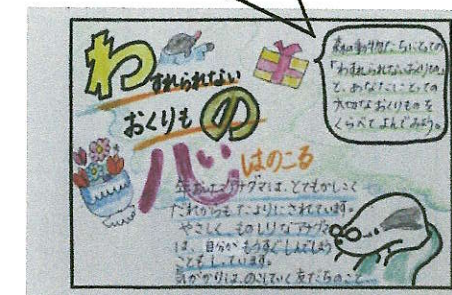 わすれられない
おくりもの
心はのこる
森の動物たちにとっての
「わすれられないおくりもの」
と、あなたにとっての
大切なおくりものを
くらべてよんでみよう。
年おいたアナグマは、とてもかしこく
だれからもたよりにされています。
やさしく、ものしりなアナグマ
は、自分がもうすぐしんでしまう
こともしっています。
気がかりは、のこしていく友だちのこと